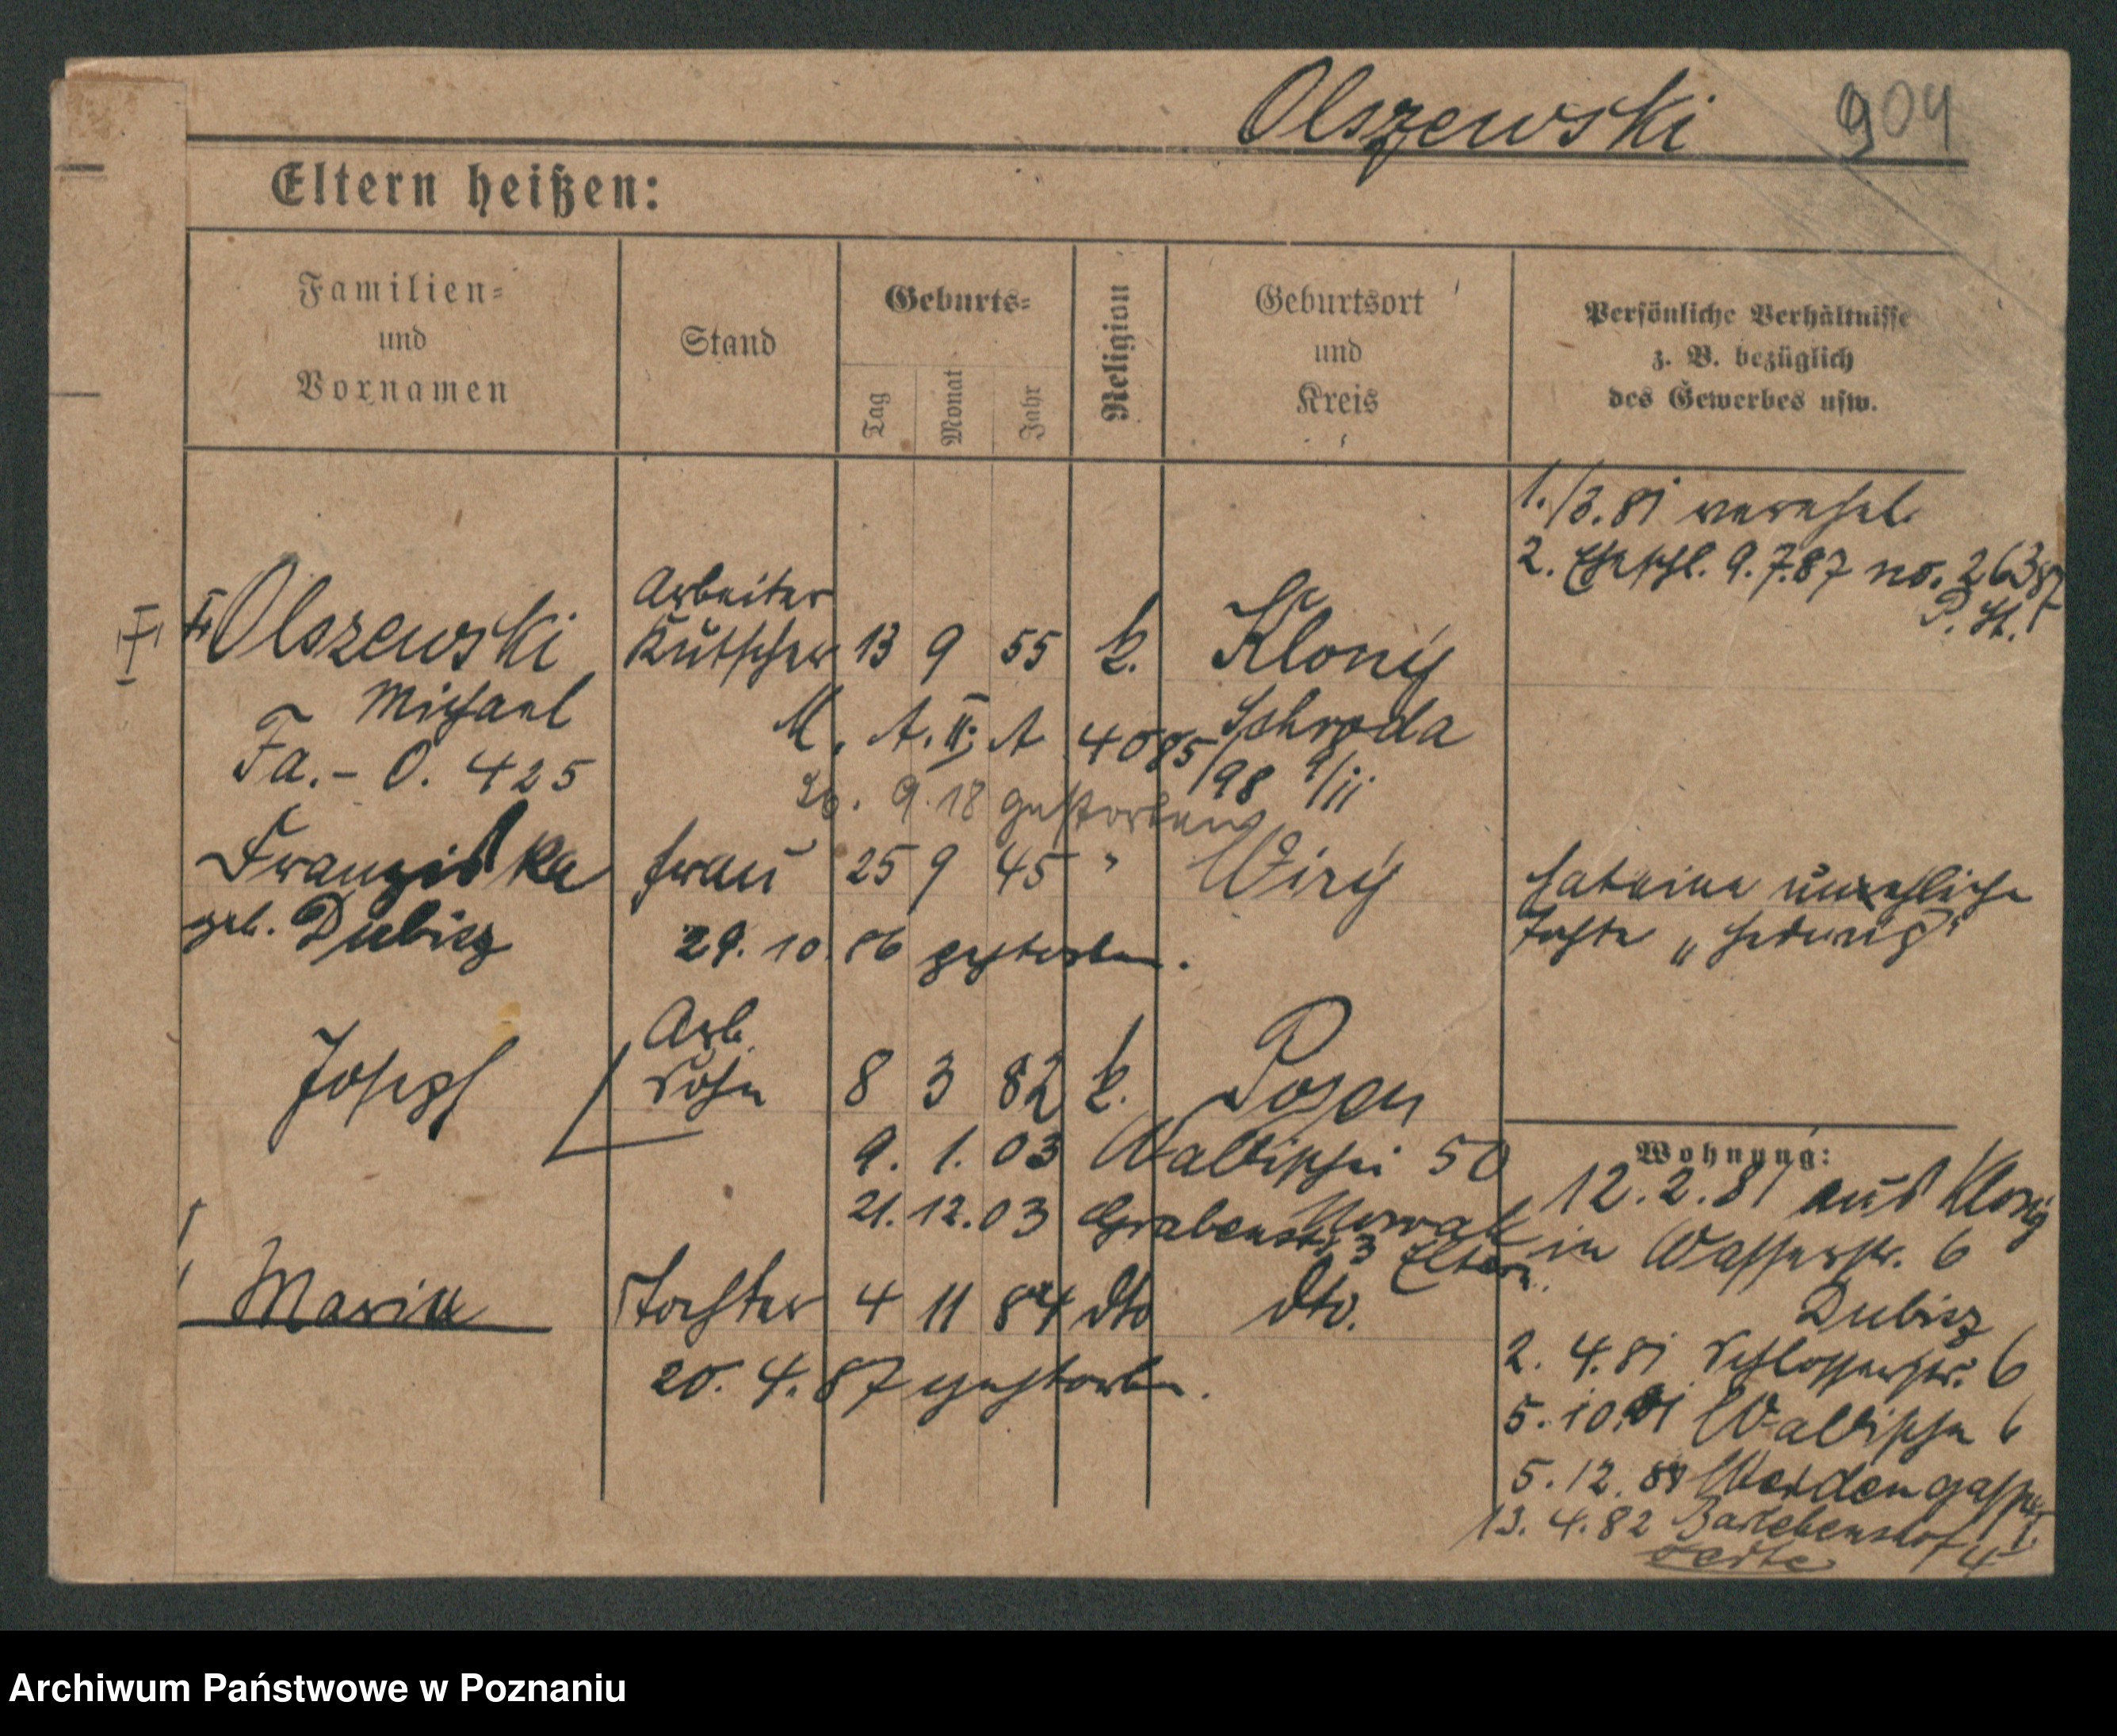 Olszewski 904
Eltern heißen:
Familien-
und
Vornamen
Stand
Geburts-
Tag
Monat
Jahr
Religion
Geburtsort
und
Kreis
Persönliche Verhältnisse
z. B. bezüglich
des Gewerbes usw.
1./3.81 verehel.
2. Eheschl. 9.7.87 no. 263/87
P. St. I
Arbeiter
Olszewski Kutscher 13 9 55 k. Klony
Michael M. A. II; A 4085/98 9/11 Schroda
Fa. - O. 425
26. 9. 18 gestorben
Franziska Frau 25 9 45 " Wiry
geb. Dubisz 29. 10. 86 gestorben.
hat eine uneheliche
Tochter „Hedwig"
Arb.
Joseph Sohn 8 3 82 k. Posen
9. 1. 03 Wallischei 50
Nowak
21. 12. 03 Grabenstr. 3 Eltern
Maria Tochter 4 11 84 dto dto.
20. 4. 87 gestorben.
Wohnung:
12. 2. 81 aus Klony
in Wasserstr. 6
Dubisz
2. 4. 81 Schlosserstr. 6
5. 10. 81 Wallischei 6
5. 12. 81 Weidengasse
13. 4. 82 Bartelmshof 4